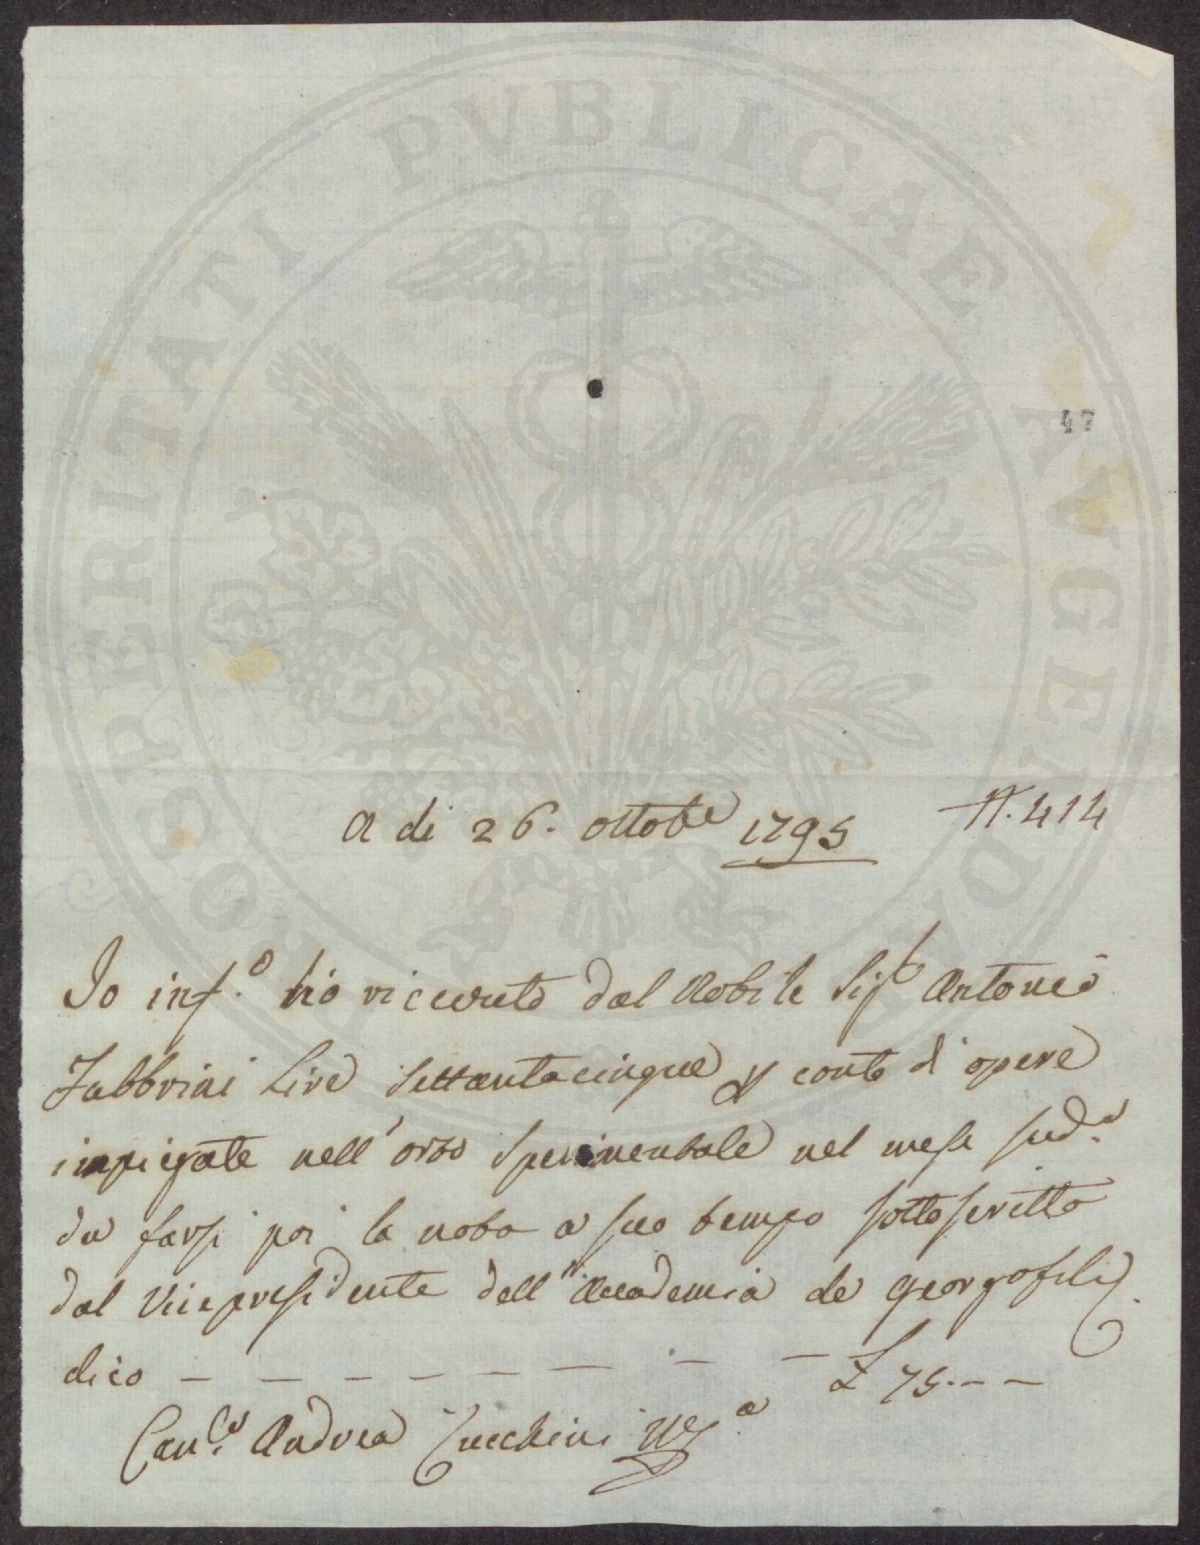 PROSPERITATI PUBLICAE AUGENDAE
47
A di 26. ottobe 1795 N. 414
Io inf.o ho riceuuto dal Nobile Sigr Antonio
Fabbrini Lire Settantacinque p conto d'opere
impiegate nell'orto Sperimentale nel mese sud.o
da farsi poi la nota a suo tempo sottoscritta
dal Vicepresidente dell'Accademia de Georgofili
dico — — — — — — — — £ 75.--
Andrea Zucchini